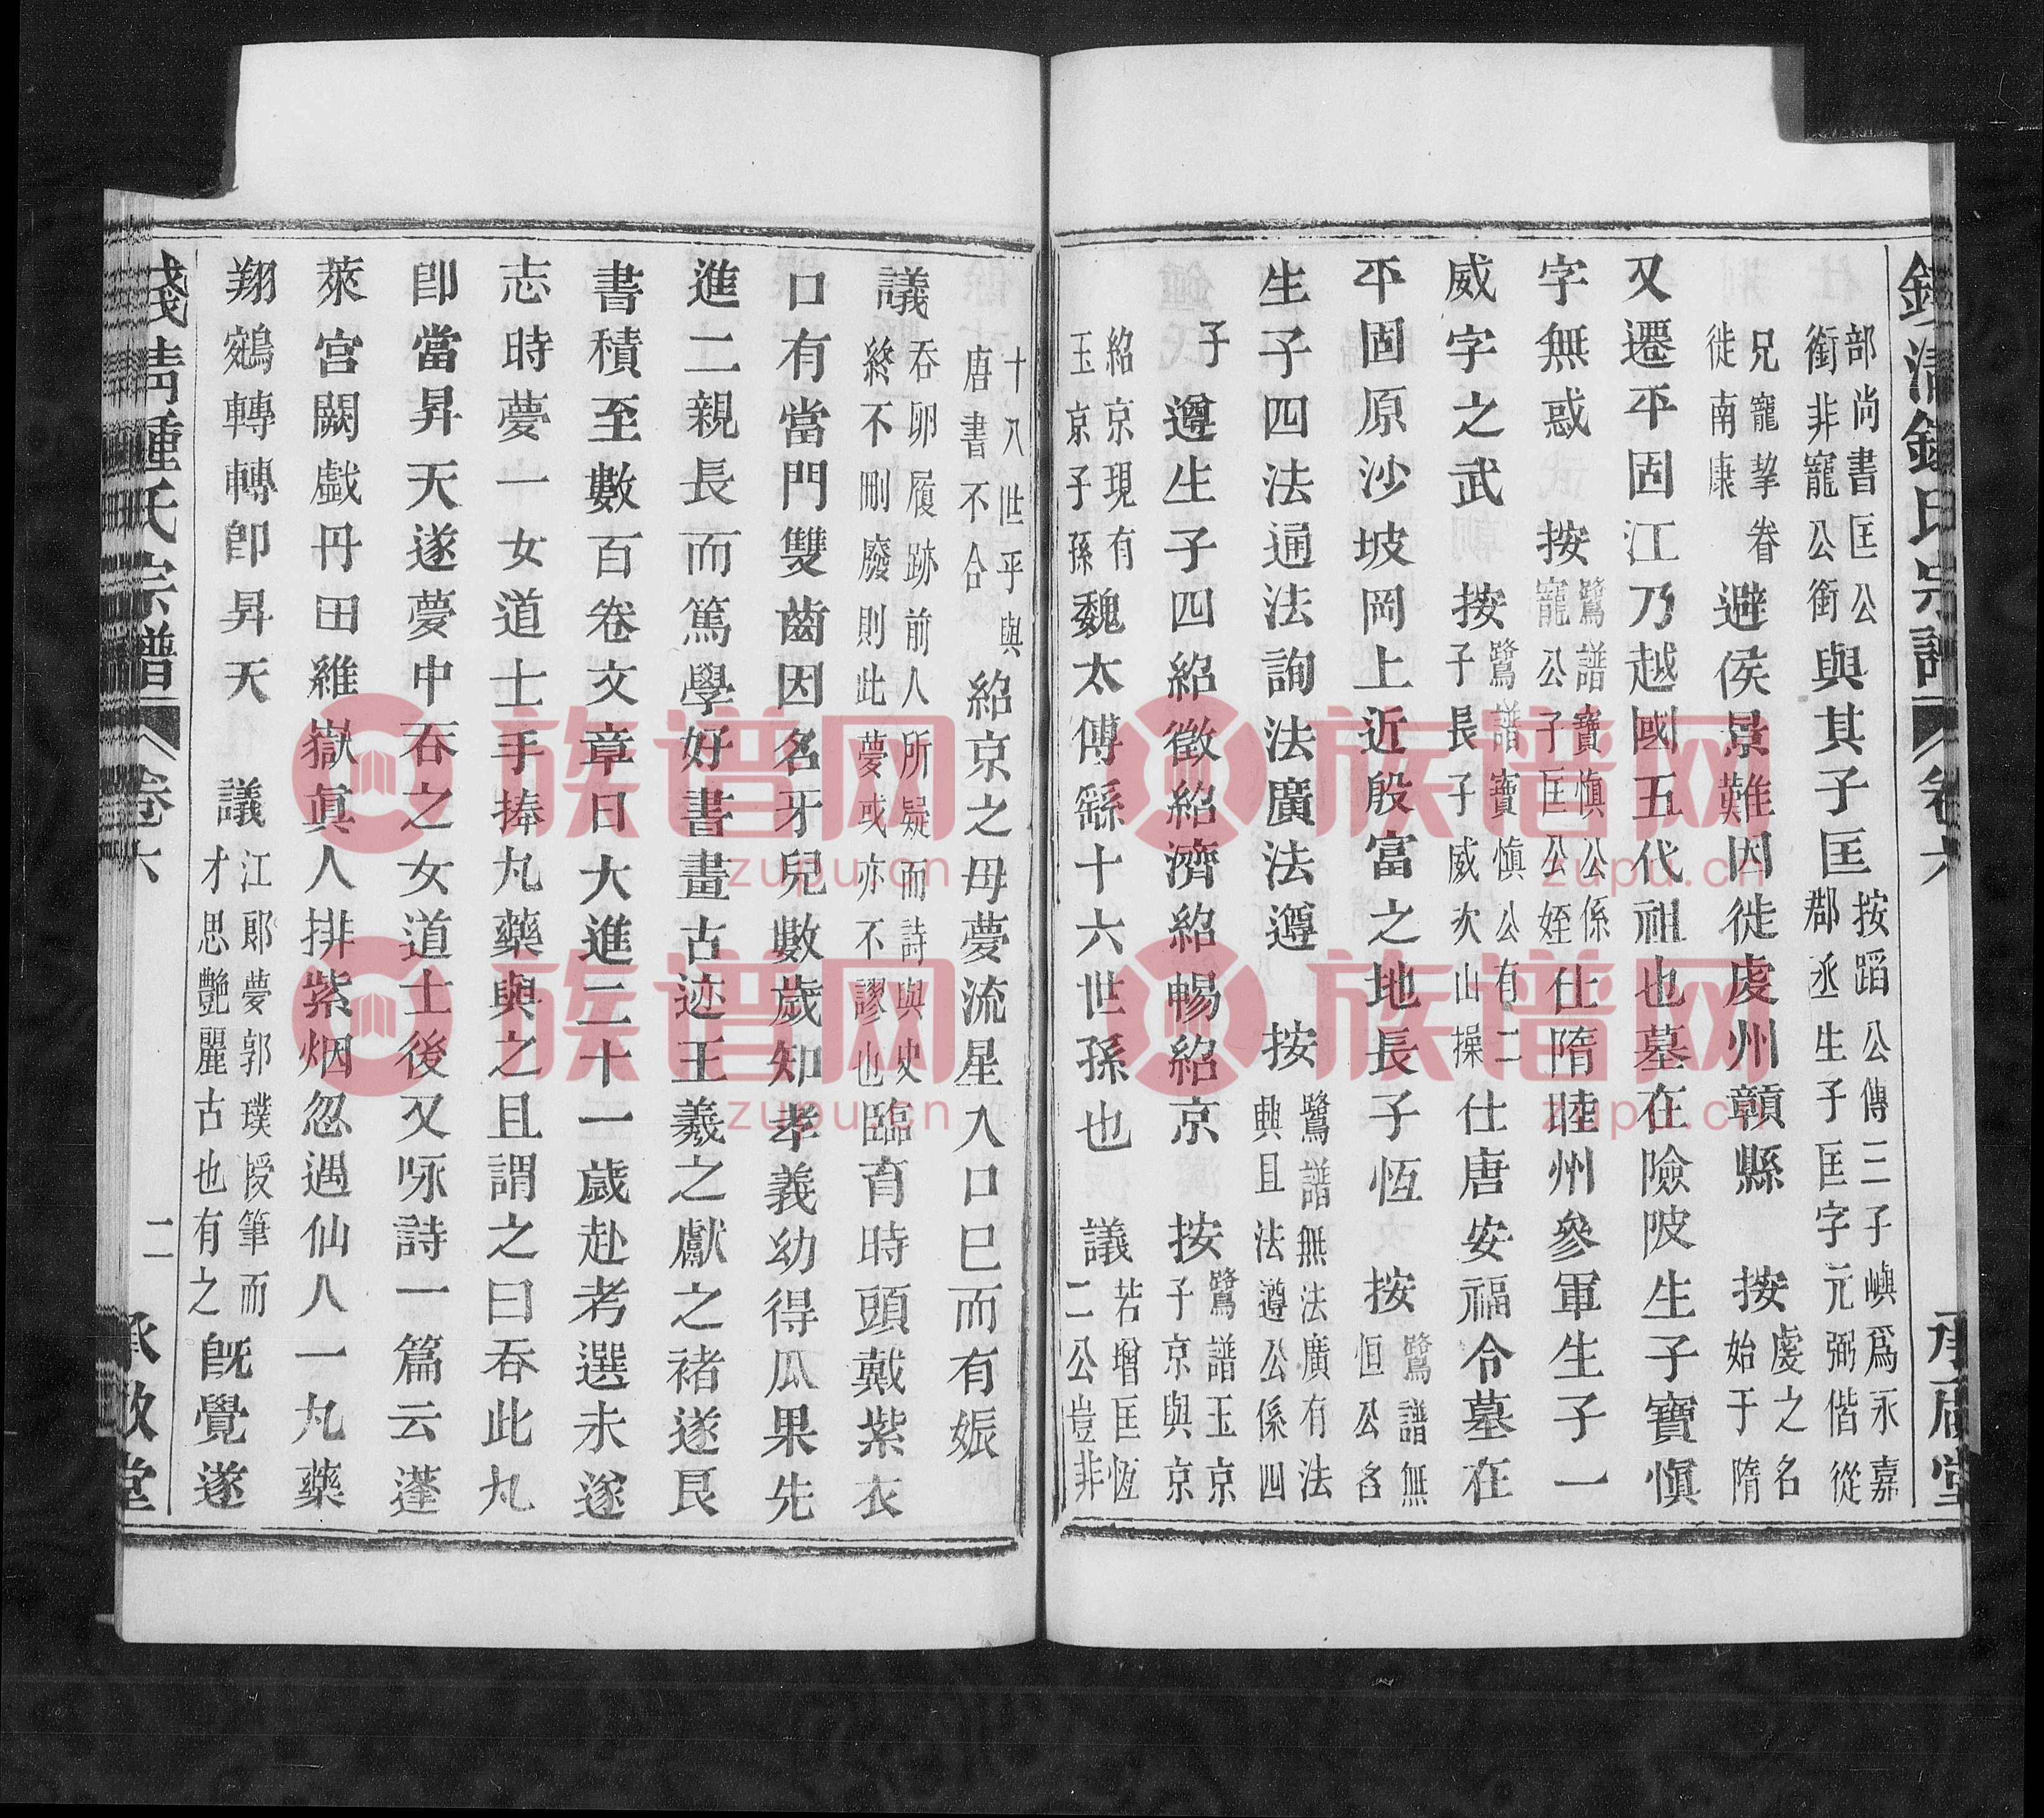 部尚書匡公
銜非寵公銜
與其子匡
按蹈公傳三子嶼爲永嘉
郡丞生子匡字元弼偕從
兄寵挈眷
徙南康
避侯景難因徙虔州贛縣
按
虔之名
始于隋
又遷平固江乃越國五代祖也墓在險陂生子寶慎
字無惑
按
鷺譜寶慎公係
寵公子匡公姪
仕隋睦州參軍生子一
威字之武
按
鷺譜寶慎公有二
子長子威次山操
仕唐安福令墓在
平固原沙坡岡上近殷富之地長子恆
按
鷺譜無
恒公名
生子四法通法詢法廣法遵
按
鷺譜無法廣有法
興且法遵公係四
子
遵生子四紹徵紹濟紹暢紹京
按
鷺譜玉京
子京與京
紹京現有
玉京子孫
魏太傅繇十六世孫也
議
若增匡恆
二公豈非
十八世乎與
唐書不合
紹京之母夢流星入口巳而有娠
議
吞卵履跡前人所疑而詩與史
終不刪廢則此夢或亦不謬也
臨育時頭戴紫衣
口有當門雙齒因名牙兒數歲知孝義幼得瓜果先
進二親長而篤學好書畫古迹王羲之獻之褚遂良
書積至數百卷文章日大進二十一歲赴考選未遂
志時夢一女道士手捧丸藥與之且謂之曰吞此丸
卽當昇天遂夢中吞之女道士後又咏詩一篇云蓬
萊宮闕戲丹田維嶽眞人排紫烟忽遇仙人一丸藥
翔鵷轉轉卽昇天
議
江郎夢郭璞授筆而
才思艷麗古也有之
旣覺遂
鍾氏宗譜
卷六
二
承啟堂
族谱网
zupu.cn
族谱网
zupu.cn
族谱网
zupu.cn
族谱网
zupu.cn